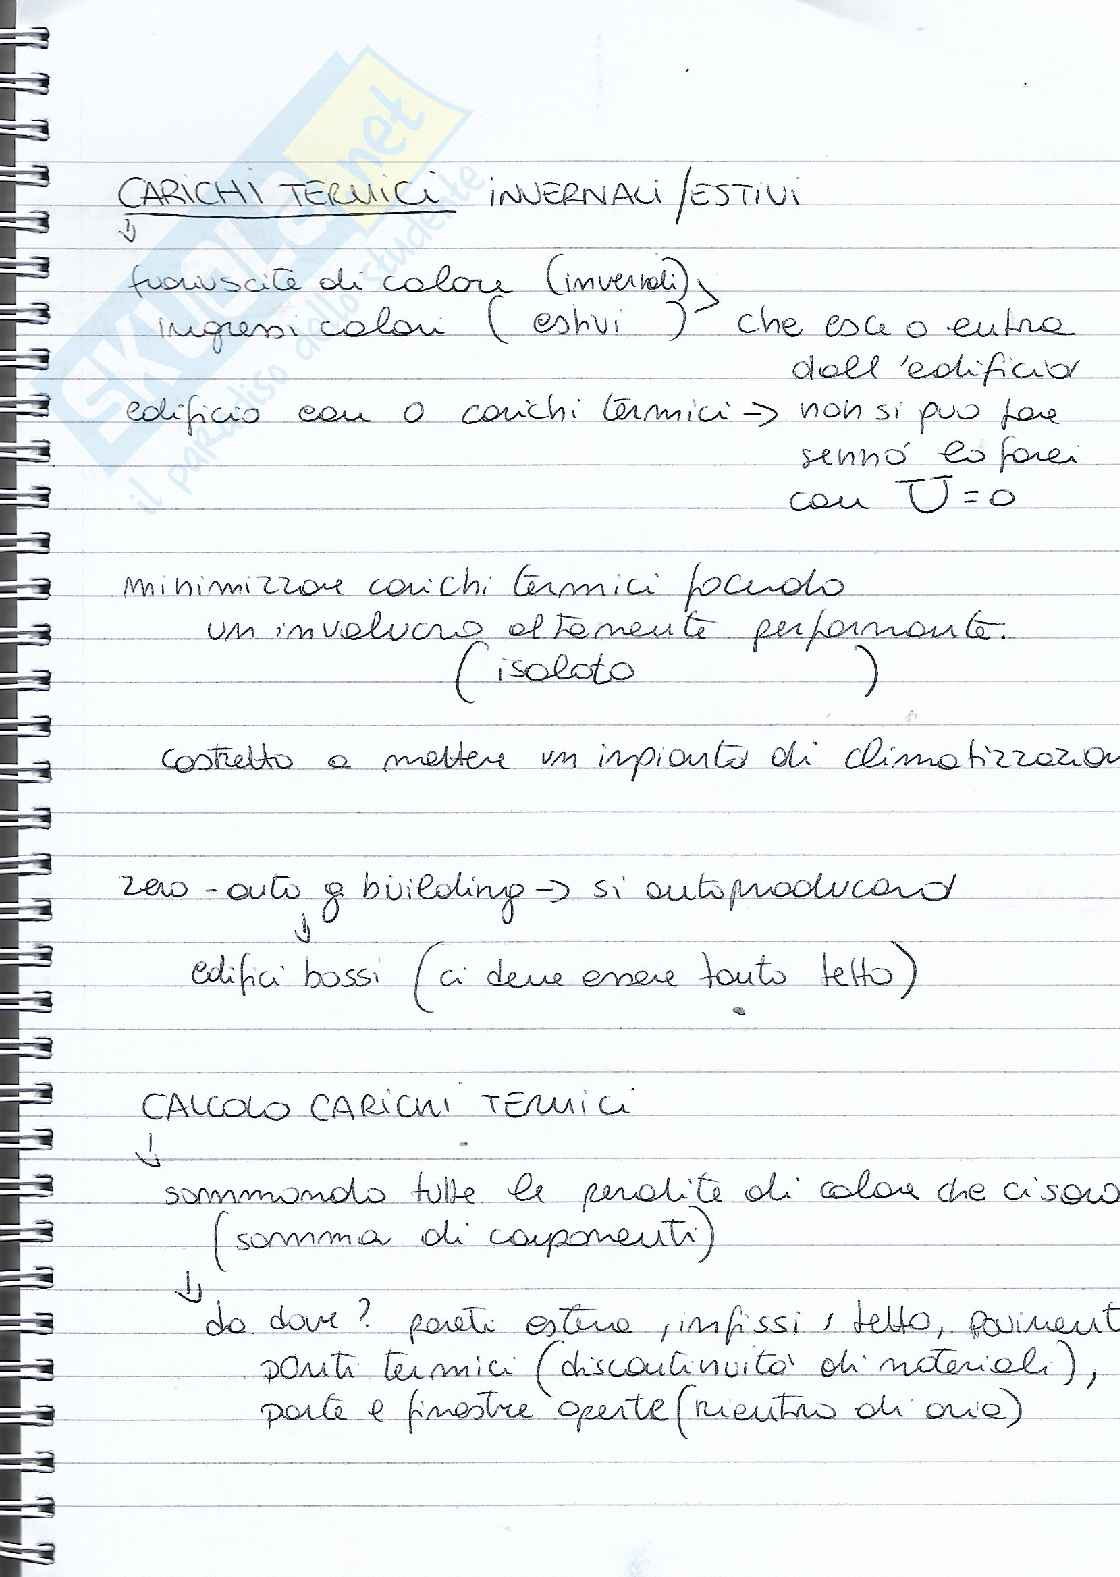 CARICHI TERMICI INVERNALI/ESTIVI
fuoriuscite di calore (invernali)
ingressi calori ( estivi ) che esce o entra
dall'edificio
edificio con 0 carichi termici → non si può fare
sennò lo farei
con U=0
minimizzare carichi termici facendo
un involucro altamente performante.
( isolato )
costretto a mettere un inpianto di climatizzazion
zero - auto g building → si autoproducono
edifici bassi (ci deve essere tanto tetto)
CALCOLO CARICHI TERMICI
sommando tutte le perdite di calore che ci sono
(somma di componenti)
da dove? pareti esterne, infissi, tetto, paviment
ponti termici (discontinuità di materiali),
porte e finestre aperte (rientro di aria)
SKUOLA.net
il paradiso dello studente